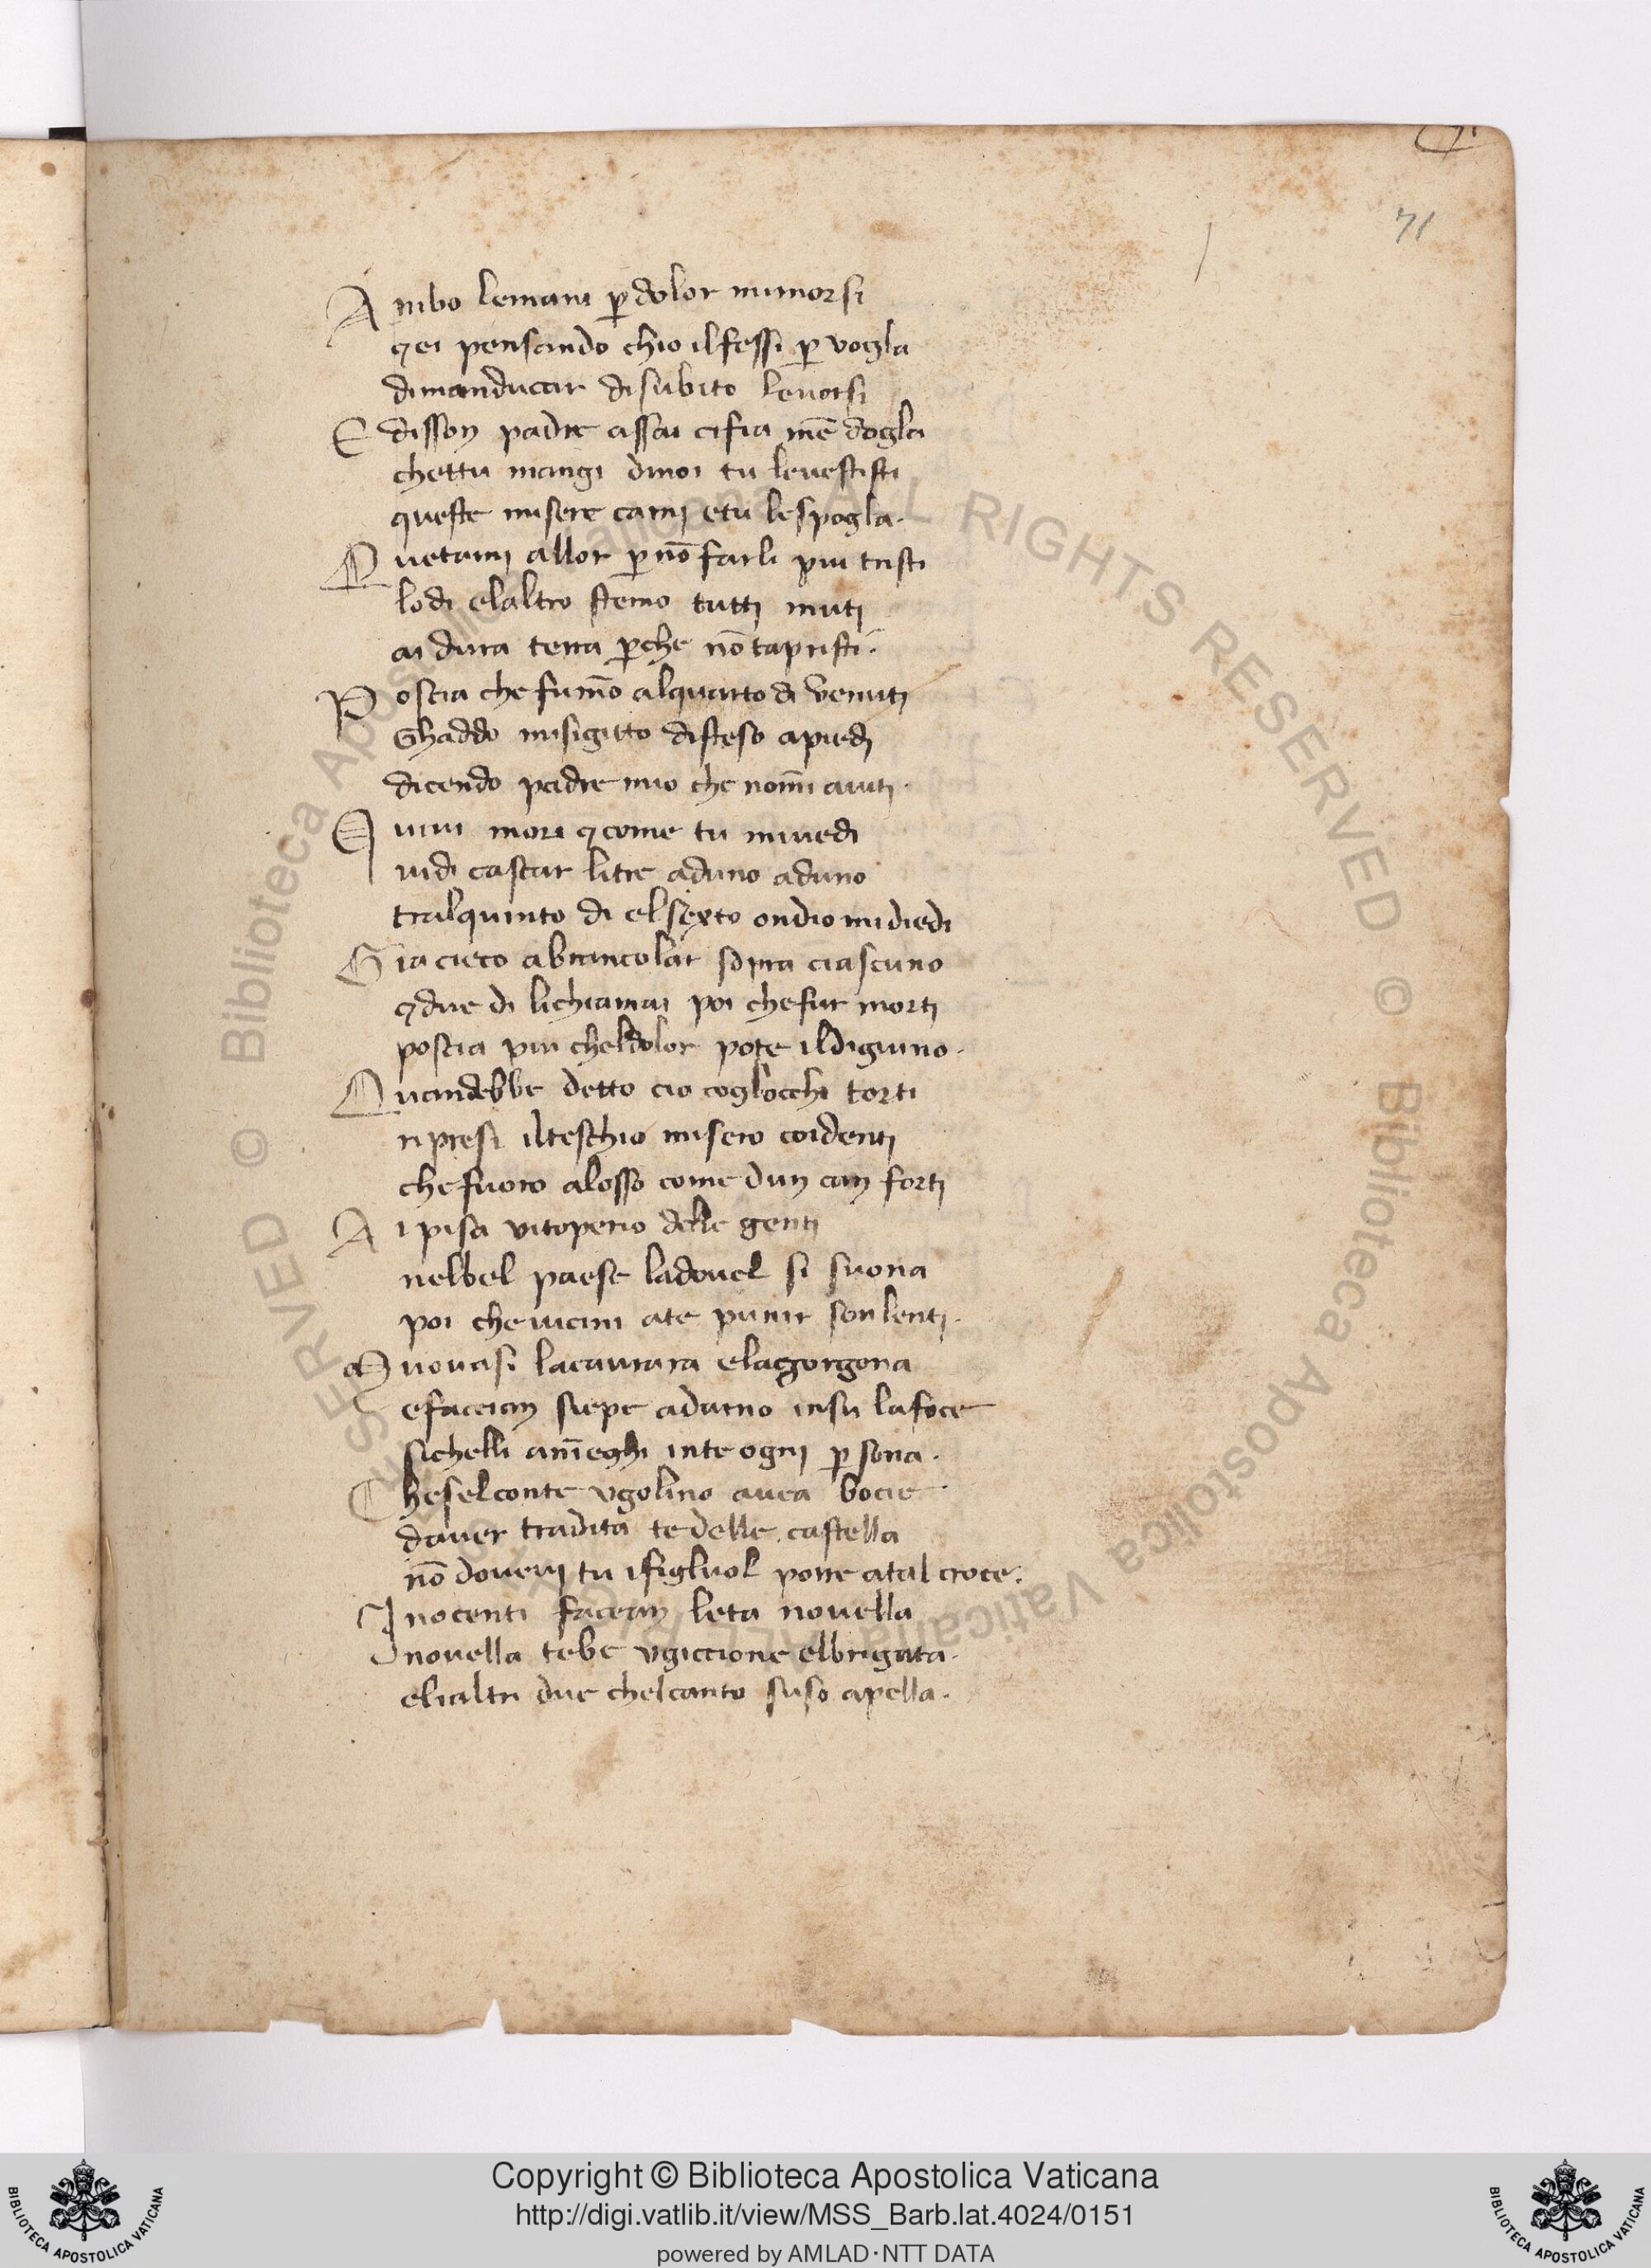 71
Ambo lemani p̲ dolor mimorsi
⁊ei pensando chio ilfessi p̲ vogla
dimanducar disubito levorsi
E disson padre assai cifia mē dogla
chettu mangi dinoi tu levestisti
queste misere carni etu lespogla.
Quetami allor p̲ nō farli piu tristi
lodi elaltro stemo tutti muti
ai dura terra p̲che nō tapristi.
Poscia che fum̄o alquarto di venuti
Ghaddo misigitto disteso apiedi
dicendo padre mio che nom̄i aiuti.
Quivi mori ⁊come tu mivedi
vidi cascar litre aduno aduno
tralquinto di elsexto ondio midiedi
Gia cieco abrancolar sopra ciascuno
⁊due di lichiamai poi chefur morti
poscia piu cheldolor pote ildigiuno.
Quandebbe detto cio coglocchi torti
ripresi ilteschio misero coidenti
chefuoro alosso come dun can forti
Ai pisa vitoperio delle genti
nelbel paese ladovel si suona
poi chevicini ate punir sonlenti.
Muovasi lacavrara elagorgona
efaccian siepe adarno insu lafoce
sichelli am̄eghi inte ogni p̲sona.
Cheselconte vgolino avea bocie
daver tradita te delle castella
nō dovevi tu ifigluol porre atal croce.
Inocenti facean leta novella
novella tebe vgiccione elbrigata.
elialtri due chelcanto suso apella.
© Biblioteca Apostolica Vaticana ALL RIGHTS RESERVED
Copyright © Biblioteca Apostolica Vaticana
http://digi.vatlib.it/view/MSS_Barb.lat.4024/0151
powered by AMLAD·NTT DATA
BIBLIOTECA APOSTOLICA VATICANA
BIBLIOTECA APOSTOLICA VATICANA